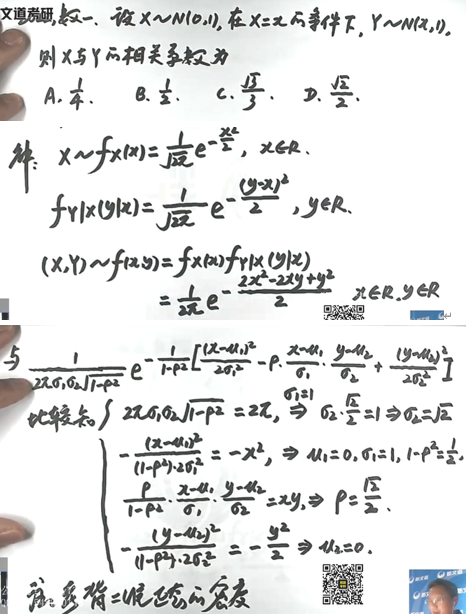 文道考研
数一、设 X~N(0,1), 在 X=x 的条件下, Y~N(x,1),
则 X 与 Y 的相关系数为
A. 1/4. B. 1/2. C. √3/3. D. √2/2.
解: X~f_X(x)=1/√(2π) e^{-x²/2}, x∈R.
f_{Y|X}(y|x)=1/√(2π) e^{-(y-x)²/2}, y∈R.
(X,Y)~f(x,y)=f_X(x)f_{Y|X}(y|x)
=1/(2π) e^{-(2x²-2xy+y²)/2} x∈R, y∈R
与 1/(2πσ₁σ₂√(1-ρ²)) e^{-1/(1-ρ²)[(x-μ₁)²/(2σ₁²)-ρ·(x-μ₁)/σ₁·(y-μ₂)/σ₂+(y-μ₂)²/(2σ₂²)]}
比较知 { 2πσ₁σ₂√(1-ρ²)=2π, σ₁=1 ⇒ σ₂·√2/2=1 ⇒ σ₂=√2
-(x-μ₁)²/((1-ρ²)·2σ₁²)=-x², ⇒ μ₁=0, σ₁=1, 1-ρ²=1/2,
ρ/(1-ρ²)·(x-μ₁)/σ₁·(y-μ₂)/σ₂=xy, ⇒ ρ=√2/2.
-(y-μ₂)²/((1-ρ²)·2σ₂²)=-y²/2 ⇒ μ₂=0.
注: 要背二维正态的密度